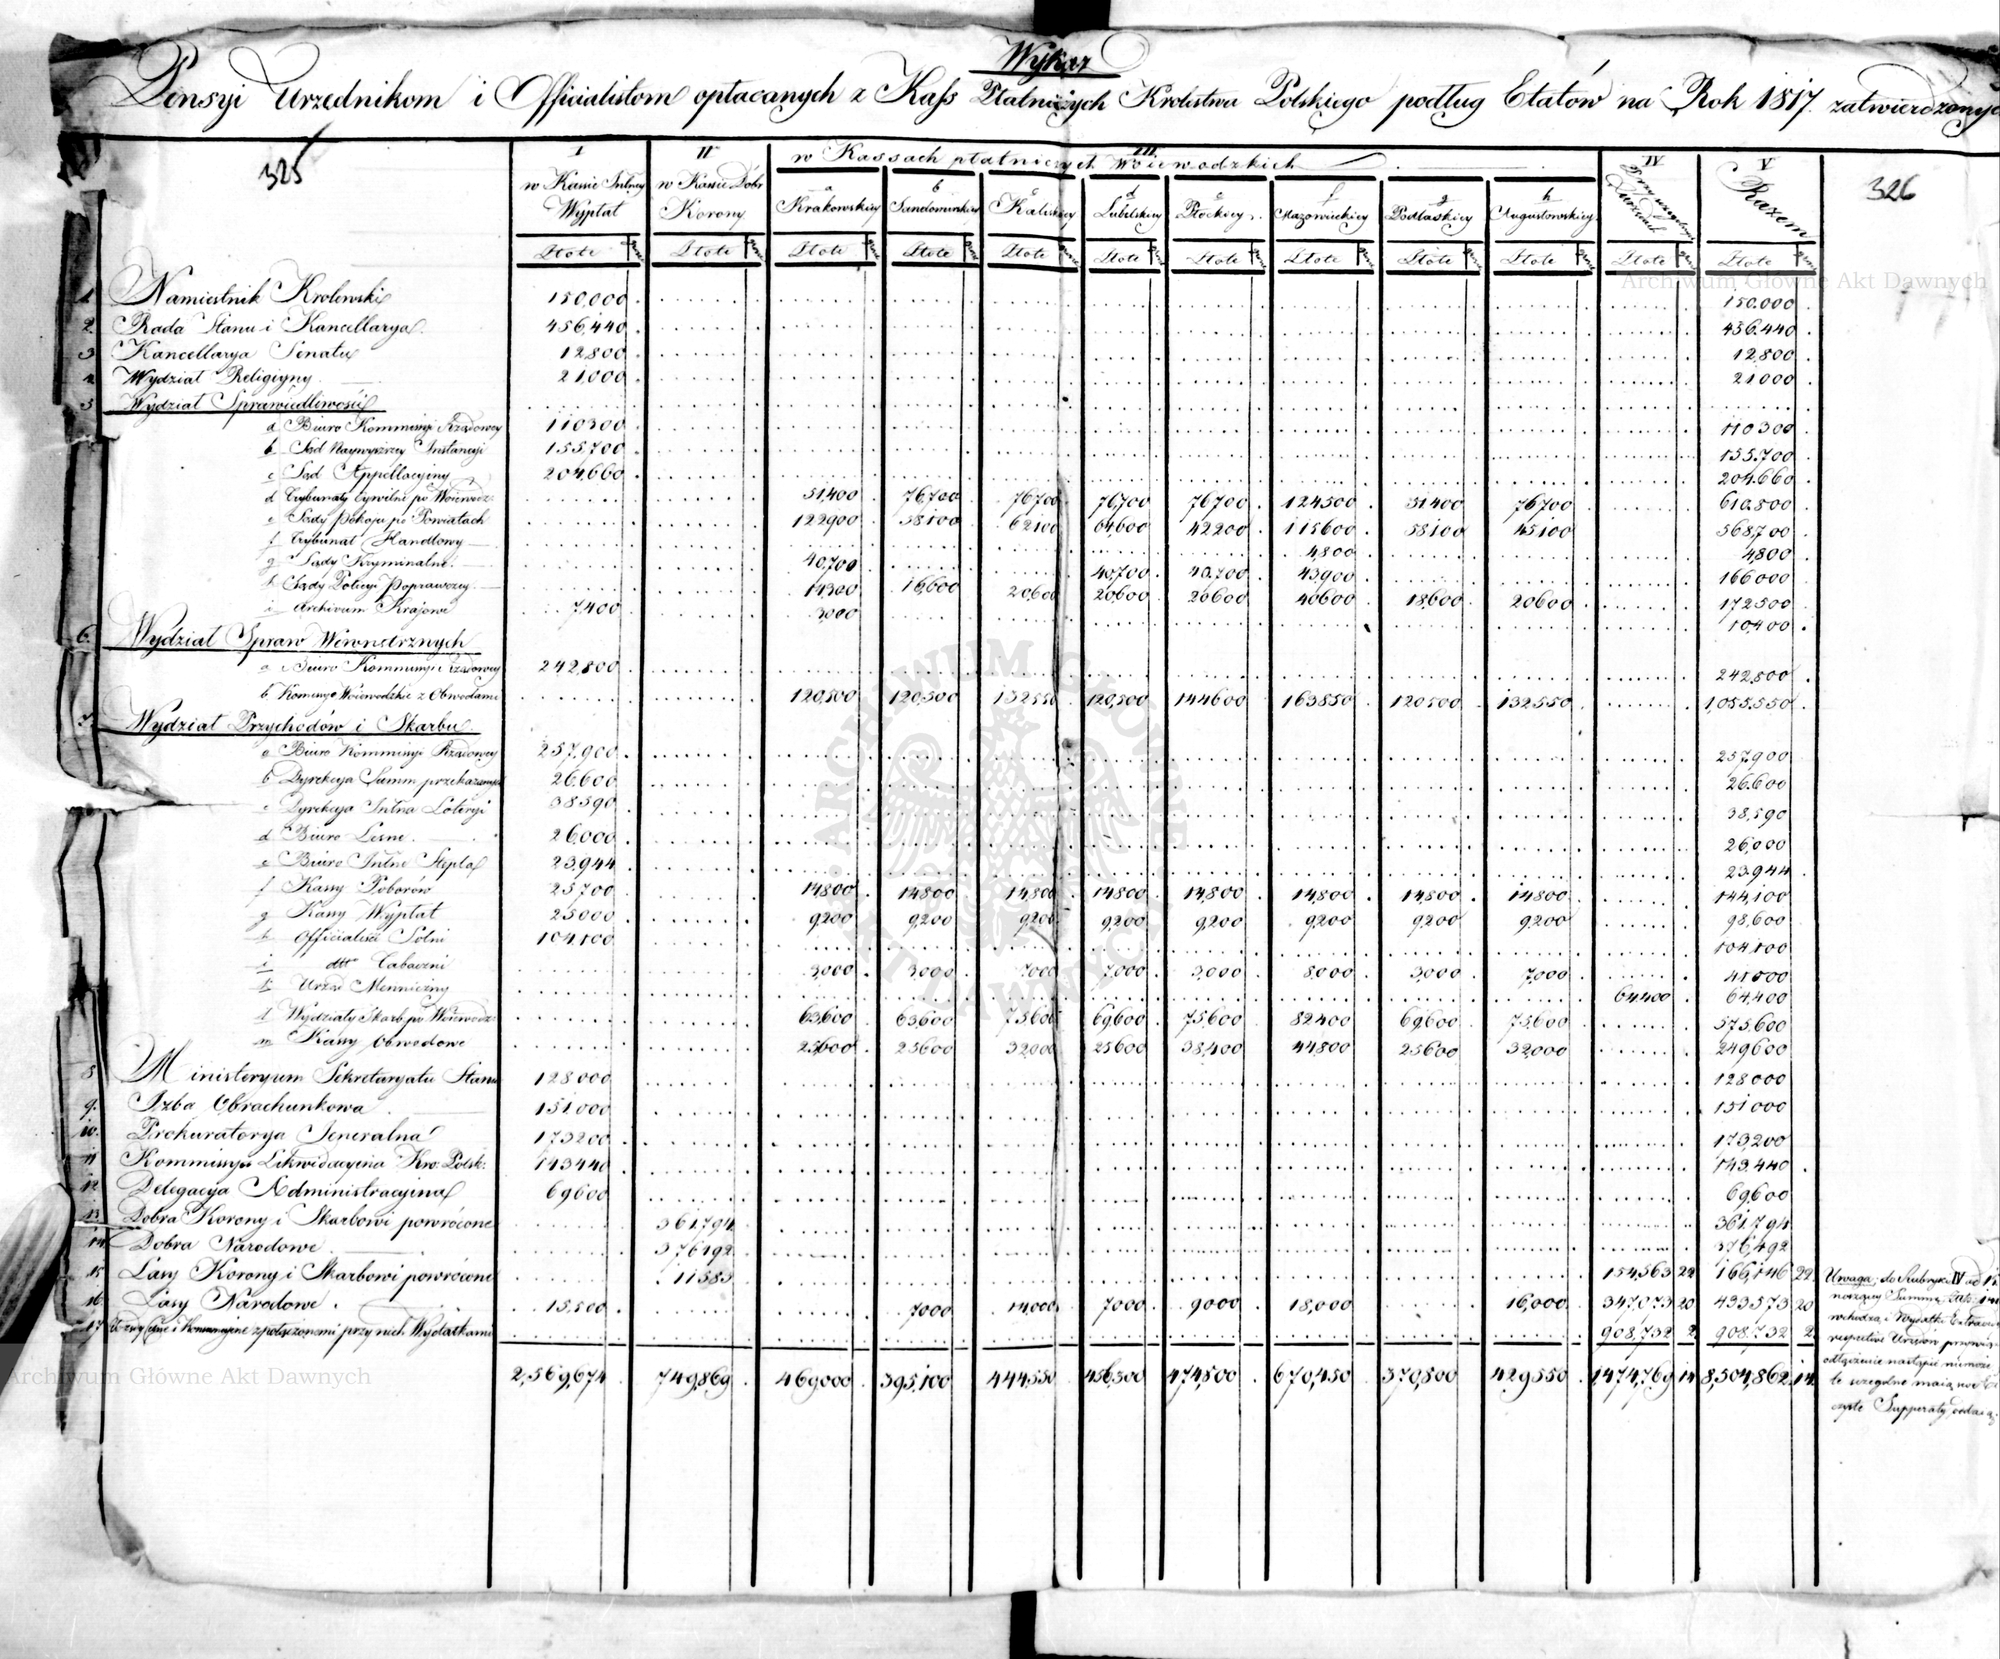 Wykaz
Pensyi Urzędnikom i Officialistom opłacanych z Kass Płatniczych Krolestwa Polskiego podług Etatów na Rok 1817. zatwierdzonych
325
I II III IV V
w Kassie Intney Wypłat
w Kassie Dobr Korony
w Kassach płatniczych Woiewodzkich
a Krakowskiey
b Sandomirskiey
c Kaliskiey
d Lubelskiey
e Płockiey
f Mazowieckiey
g Podlaskiey
h Augustowskiey
Razem
326
Złote Złote Złote Złote Złote Złote Złote Złote Złote Złote Złote Złote
1 Namiestnik Krolewski 150,000 150.000
2. Rada Stanu i Kancellarya 456,440 456.440
3 Kancellarya Senatu 12,800 12,800
4 Wydział Religiyny 21,000 21000
5 Wydział Sprawiedliwości
a Biuro Kommissyi Rządowey 110300 110300
b Sąd Naywyższey Instancyi 155,700 155.700
c Sąd Appellacyiny 204,660 204.660
d Trybunały Cywilne po Woiewodz: 51,400 76,700 76700 76,700 76700 124500 51400 76700 610.800
e Sądy Pokoju po Powiatach 122900 58100 62100 64,600 42200 115600 58100 45100 568,700
f Trybunał Handlowy 4800 4,800
g Sądy Kryminalne 40,700 40,700 40,700 43,900 166000
h Sądy Policyi Poprawczey 14300 16,600 20,600 20,600 20600 40600 18,600 20600 172500
i Archivum Kraiowe 7,400 3,000 10,400
6. Wydział Spraw Wewnętrznych
a Biuro Kommissyi Rządowey 242,800 242,800
b Kommissye Woiewodzkie z Obwodami 120,500 120,500 132550 120,500 144600 163850 120500 132550 1,055.550
7. Wydział Przychodów i Skarbu
a Biuro Kommissyi Rządowey 257,900 257,900
b Dyrekcya Summ przekazanych 26600 26.600
c Dyrekcya Intna Loteryi 38590 38,590
d Biuro Leśne 26000 26,000
e Biuro Intne Stępla 23,944 23.944
f Kassy Poborów 25700 14800 14800 14,800 14800 14,800 14,800 14,800 14800 144,100
g Kassy Wypłat 25000 9,200 9,200 9,200 9,200 9,200 9,200 9200 9,200 98,600
h Officialiści Solni 104,100 104,100
i dtto Tabaczni 3,000 3,000 7,000 7,000 3,000 8,000 3,000 7,000 41,000
k Urząd Menniczny 64400 64,400
l Wydziały Skarb. po Woiewodz: 63,600 63600 75600 69,600 75.600 82400 69,600 75.600 575.600
m Kassy Obwodowe 25600 25600 32000 25600 38,400 44,800 25600 32,000 249600
8 Ministeryum Sekretaryatu Stanu 128,000 128000
9. Izba Obrachunkowa 151,000 151000
10. Prokuratorya Jeneralna 173200 173,200
11 Kommissya Likwidacyina Kró: Polsk: 143440 143,440
12 Delegacya Administracyina 69600 69,600
13. Dobra Korony i Skarbowi powrócone 361,794 361.794
14 Dobra Narodowe 376492 376,492
15 Lasy Korony i Skarbowi powrócone 11583 154,563 24 166,146 24
16 Lasy Narodowe 15,500 7000 14000 7000 9000 18,000 16,000 347,073 20 433573 20
17 908,732 2 908,732 2
2,569,674 749,869 469000 395,100 444,550 456,300 474,500 670,450 370,800 429550 1,474,769 14 8,504,862 14
Uwaga, do Rubryki IV
Archiwum Główne Akt Dawnych
Archiwum Główne Akt Dawnych
ARCHIWUM GŁÓWNE AKT DAWNYCH